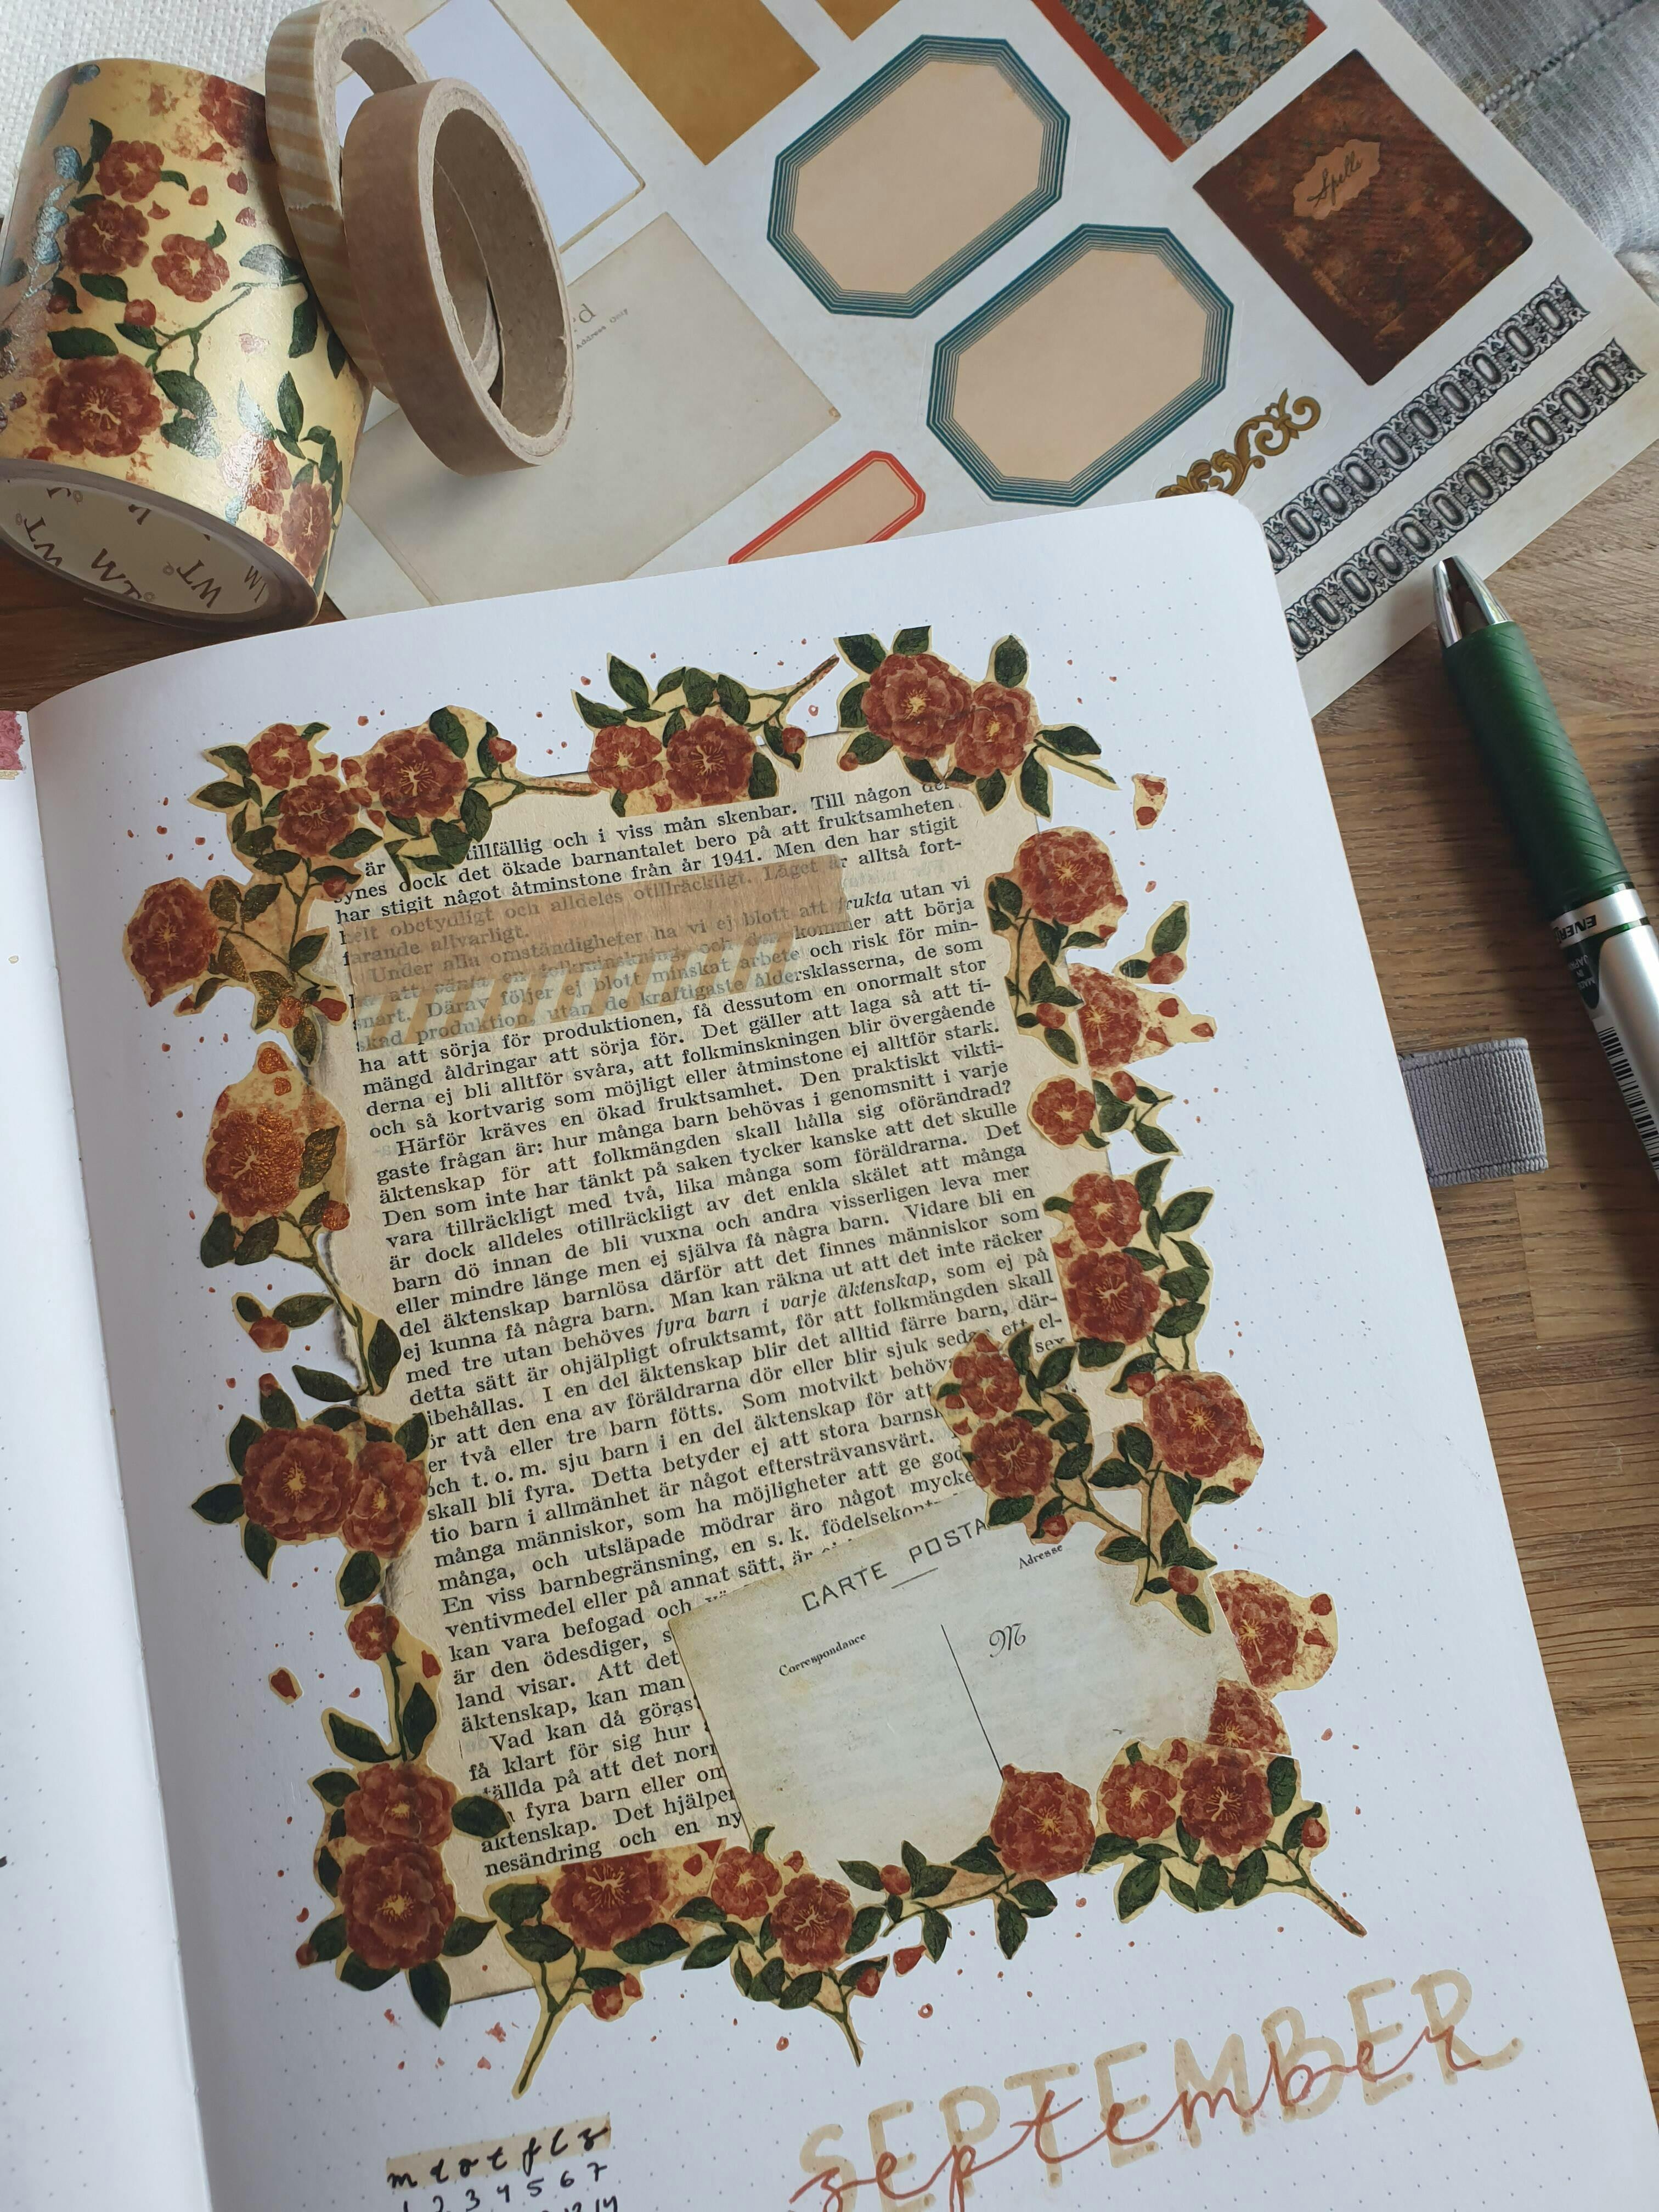 Spells
Address Only
WT
WT
WM
ENER
MADE
JAPA
är tillfällig och i viss mån skenbar. Till någon del
synes dock det ökade barnantalet bero på att fruktsamheten
har stigit något åtminstone från år 1941. Men den har stigit
helt obetydligt och alldeles otillräckligt. Läget är alltså fort-
farande allvarligt.
Under alla omständigheter ha vi ej blott att frukta utan vi
ha att vänta en folkminskning, och den kommer att börja
snart. Därav följer ej blott minskat arbete och risk för min-
skad produktion, utan de kraftigaste åldersklasserna, de som
ha att sörja för produktionen, få dessutom en onormalt stor
mängd åldringar att sörja för. Det gäller att laga så att ti-
derna ej bli alltför svåra, att folkminskningen blir övergående
och så kortvarig som möjligt eller åtminstone ej alltför stark.
Härför kräves en ökad fruktsamhet. Den praktiskt vikti-
gaste frågan är: hur många barn behövas i genomsnitt i varje
äktenskap för att folkmängden skall hålla sig oförändrad?
Den som inte har tänkt på saken tycker kanske att det skulle
vara tillräckligt med två, lika många som föräldrarna. Det
är dock alldeles otillräckligt av det enkla skälet att många
barn dö innan de bli vuxna och andra visserligen leva mer
eller mindre länge men ej själva få några barn. Vidare bli en
del äktenskap barnlösa därför att det finnes människor som
ej kunna få några barn. Man kan räkna ut att det inte räcker
med tre utan behöves fyra barn i varje äktenskap, som ej på
detta sätt är ohjälpligt ofruktsamt, för att folkmängden skall
bibehållas. I en del äktenskap blir det alltid färre barn, där-
för att den ena av föräldrarna dör eller blir sjuk sedan ett el-
ler två eller tre barn fötts. Som motvikt behöva sex
och t. o. m. sju barn i en del äktenskap för att
skall bli fyra. Detta betyder ej att stora barnsk
tio barn i allmänhet är något eftersträvansvärt.
många människor, som ha möjligheter att ge god
många, och utsläpade mödrar äro något mycke
En viss barnbegränsning, en s. k. födelsekont
ventivmedel eller på annat sätt, är
kan vara befogad och
är den ödesdiger, s
land visar. Att det
äktenskap, kan man
Vad kan då göras
få klart för sig hur
ställda på att det norm
fyra barn eller om
äktenskap. Det hjälper
nesändring och en ny
CARTE POSTA
Correspondance
Adresse
M
SEPTEMBER
september
m t o t f l s
1 2 3 4 5 6 7